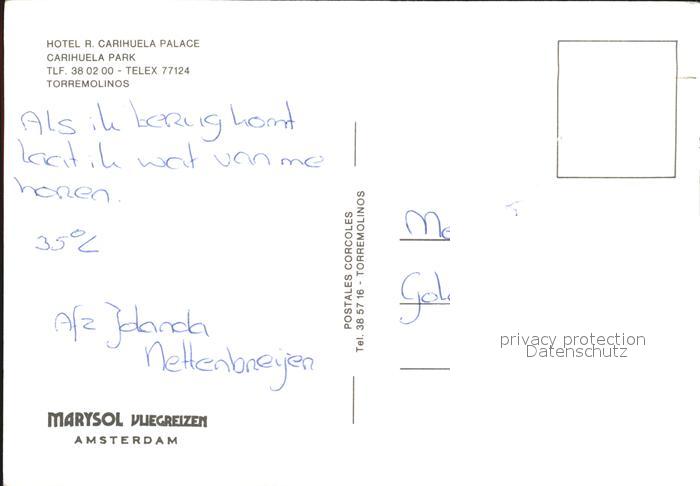 HOTEL R. CARIHUELA PALACE
CARIHUELA PARK
TLF. 38 02 00 - TELEX 77124
TORREMOLINOS
Als ik terug komt
laat ik wat van me
horen.
35°C
Afz Jolanda
Nettenbreijen
MARYSOL VLIEGREIZEN
AMSTERDAM
POSTALES CORCOLES
Tel. 38 57 16 - TORREMOLINOS
Me
Gol
privacy protection
Datenschutz